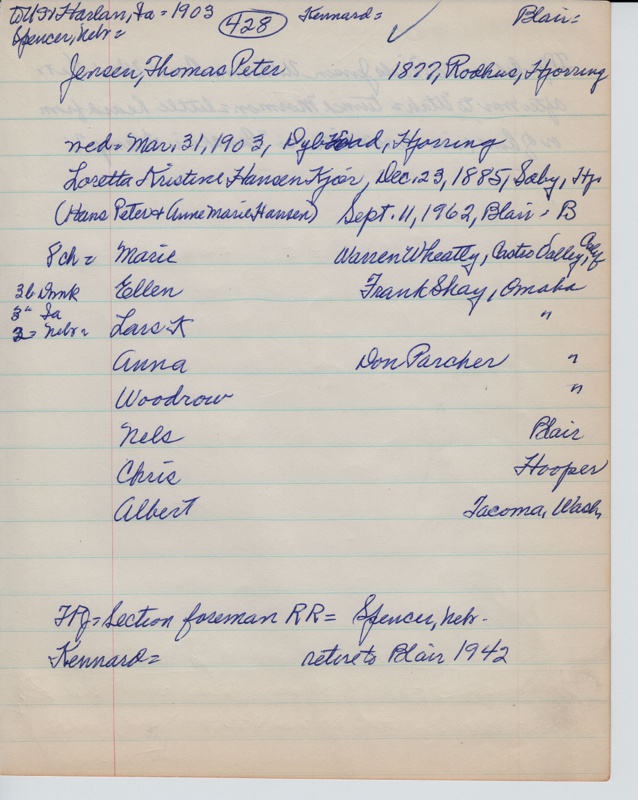 to US= Harlan, Ia = 1903 428 Kennard= Blair=
Spencer, Nebr=
Jensen, Thomas Peter 1877, Rodhus, Hjorring
wed= Mar. 31, 1903, Hjorring
Loretta Kristine Hansen Kjör, Dec. 23, 1885, Saby, Hj.
(Hans Peter & Anne Marie Hansen) Sept. 11, 1962, Blair = B
8 ch = Marie Warren Wheatly, Castro Valley, Calif
Ellen Frank Shay, Omaha
3" Ia
3= Nebr= Lars K "
Anna Don Parcher "
Woodrow "
Nels Blair
Chris Hooper
Albert Tacoma, Wash,
TPJ= Section foreman RR= Spencer, Nebr.
Kennard= retire to Blair 1942